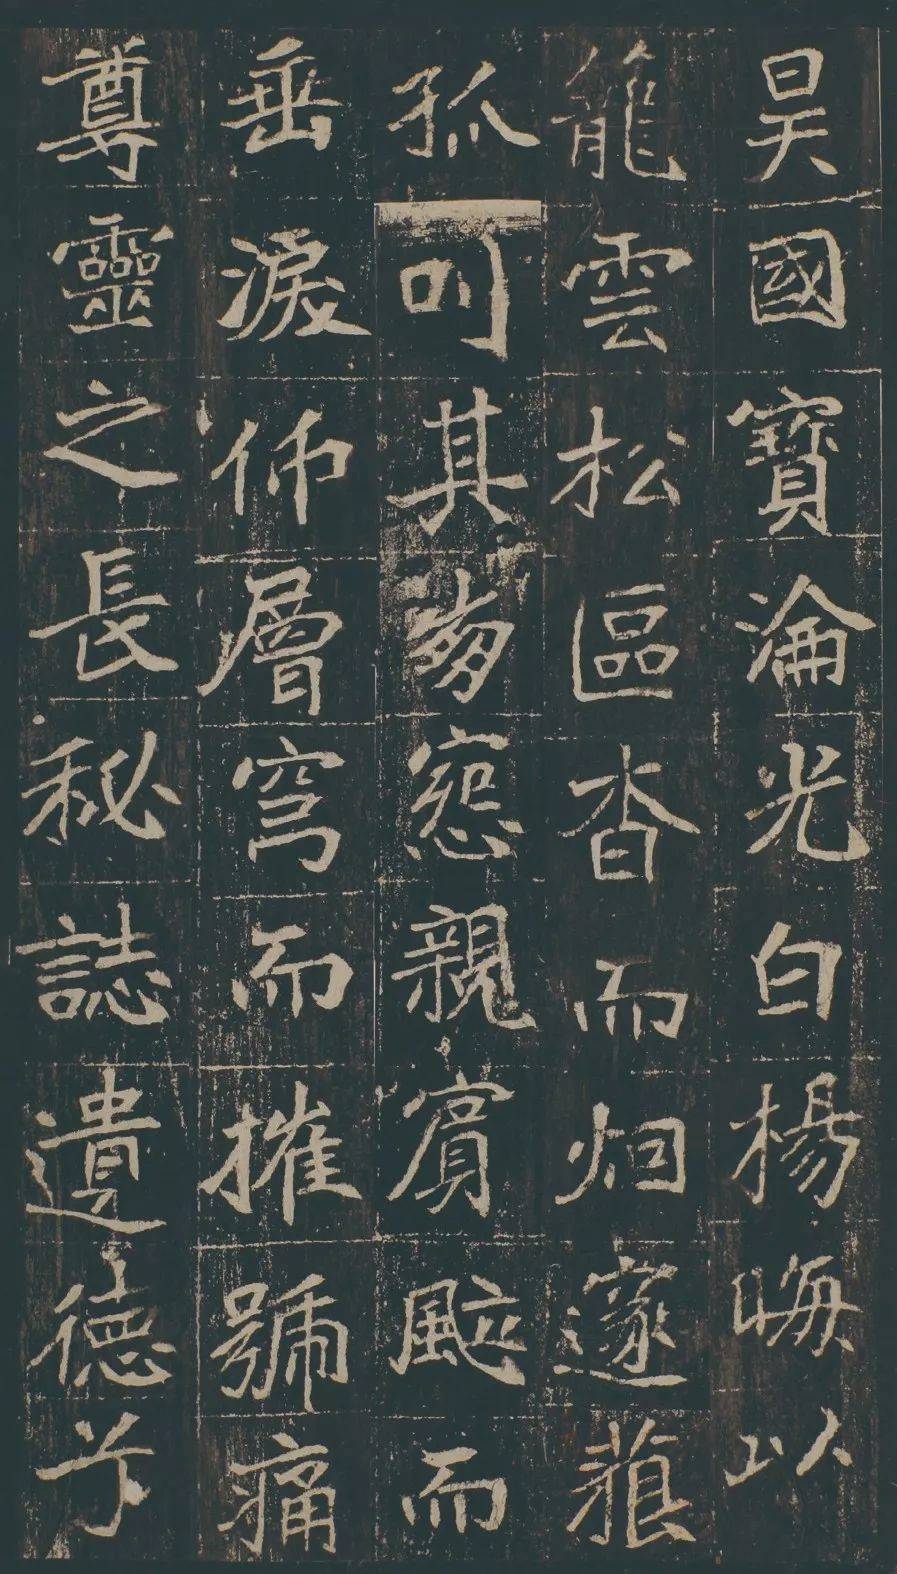 昊國寶淪光白楊晦以
籠雲松區杳而烟邃藐
孤叫其崩怨親賓颯而
垂淚仰層穹而摧號痛
尊靈之長秘誌遺德兮